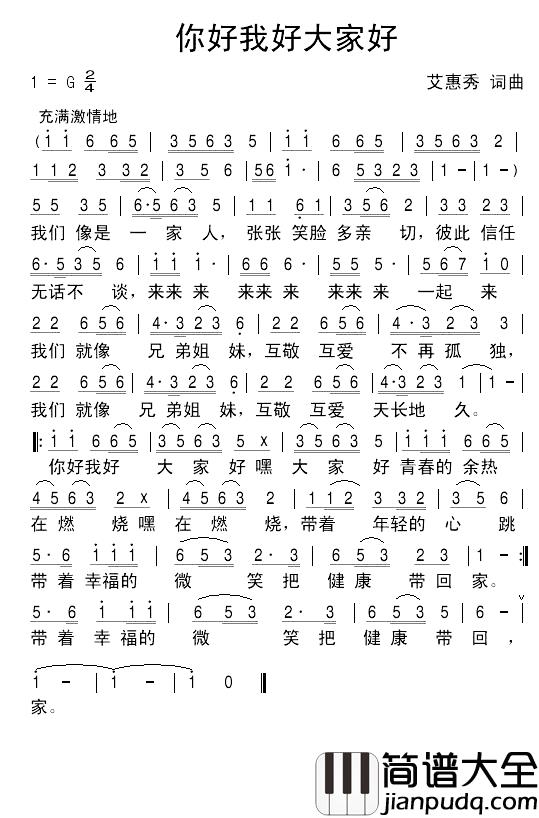 你好我好大家好
1 = G 2/4
艾惠秀 词曲
充满激情地
(1 1 6 6 5 | 3 5 6 3 5 | 1 1 6 6 5 | 3 5 6 3 2 |
1 1 2 3 3 2 | 3 5 6 | 5 6 1 · | 6 5 3 2 3 | 1 - | 1 - )
5 5 3 5 | 6 · 5 6 3 5 | 1 1 6 1 | 3 5 6 2 | 3 3 2 3 |
我们 像是 一 家 人, 张张 笑脸 多亲 切, 彼此 信任
6 · 5 3 5 | 1 1 1 · | 6 6 6 · | 5 5 5 · | 5 6 7 | 1 0 |
无话不 谈, 来来 来 来来 来 来来 来 一起 来
2 2 6 5 6 | 4 · 3 2 3 6 | 2 2 6 5 6 | 4 · 3 2 3 3 |
我们 就像 兄 弟姐 妹, 互敬 互爱 不 再孤 独,
2 2 6 5 6 | 4 · 3 2 3 | 2 2 6 5 6 | 4 · 3 2 3 | 1 | 1 - |
我们 就像 兄 弟姐 妹, 互敬 互爱 天长地 久。
‖: 1 1 6 6 5 | 3 5 6 3 5 x | 3 5 6 3 5 | 1 1 1 6 6 5 |
你好我好 大 家 好嘿 大 家 好 青春的 余热
4 5 6 3 2 x | 4 5 6 3 2 | 1 1 2 3 2 3 |
在 燃 烧嘿 在 燃 烧, 带着 年轻的 心 跳
5 · 6 1 1 1 | 6 5 3 2 · 3 | 6 5 5 2 3 | 1 - :‖
带 着 幸福的 微 笑 把 健 康 带 回 家。
5 · 6 1 1 | 6 5 3 | 2 · 3 | 6 5 5 | 6 5 |
带 着 幸 福的 微 笑 把 健 康 带 回,
1 - | 1 - | 1 0 ‖
家。
简谱大全
jianpudq.com